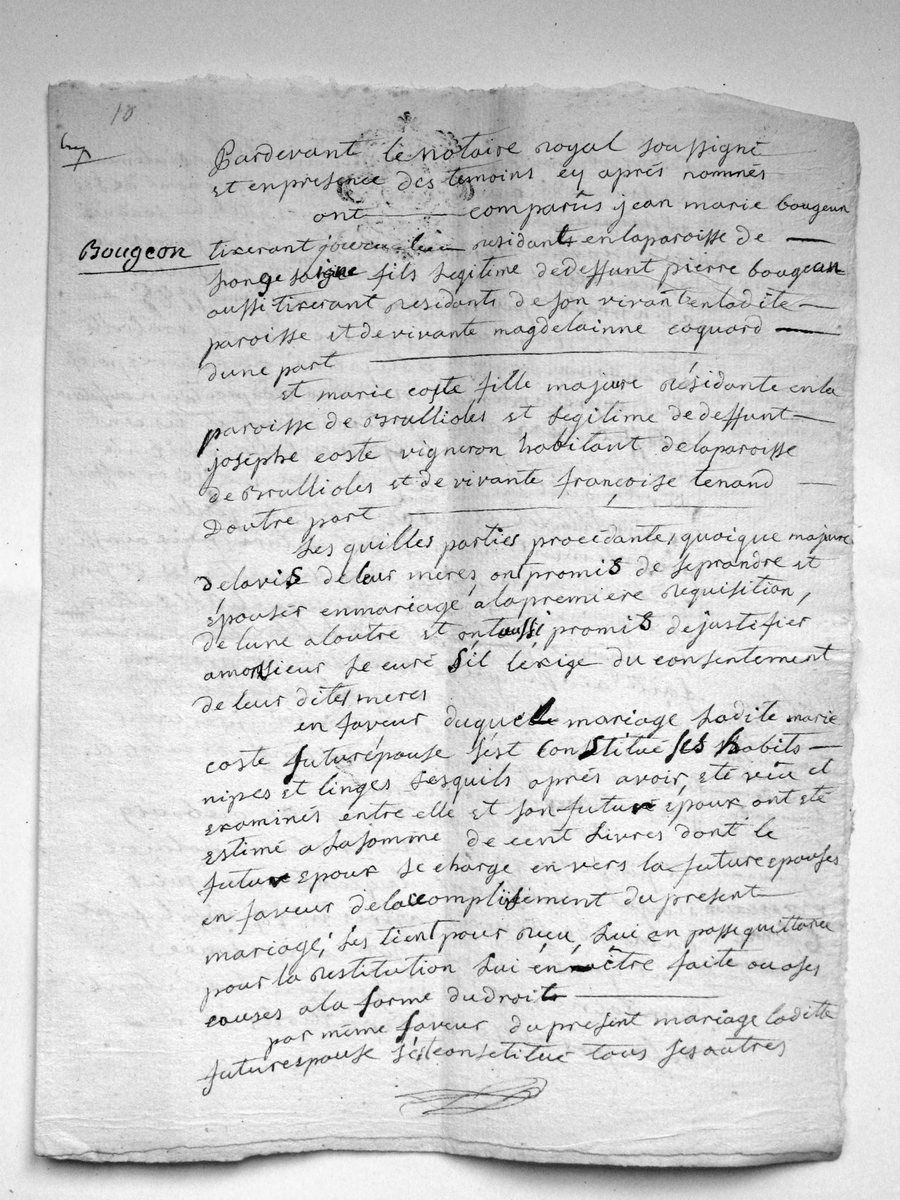 18
Pardevant le Notaire royal soussigné
et en presence des temoins cy aprés nommés
ont comparûs jean marie bougeun
Bougeon
tixerant residants en la paroisse de
fils legitime de deffunt pierre bougean
aussi tixerant residants de son vivant en ladite
paroisse et de vivante magdelainne coquard
dune part
et marie coste fille majure résidante en la
paroisse de Brullioles et legitime de deffunt
josephe coste vigneron habitant de la paroisse
de Brullioles et de vivante françoise tenand
Doutre part
Lesquilles parties procedante, quoique majure
de lavis de leur meres, ont promis de se prandre et
épouser en mariage a la premiere requisition,
de lune a loutre et ont aussi promis de justifier
a monsieur le curé s'il l'exige du consentement
de leur dites meres
en faveur duquel mariage Ladite marie
coste future épouse s'est Constitué ses habits
nipes et linges Lesquils aprés avoir eté vêu et
examinés entre elle et son futur époux ont eté
estimé a La somme de cent Livres dont le
futur epoux se charge en vers la future epouses
en faveur de lacomplissement du present
mariage, Les tient pour reçu, Lui en passe quittance
pour la restitution Lui en être faite ou a ses
causes a la forme du droit
par même faveur du present mariage ladite
future epouse s'est constitué tous ses autres